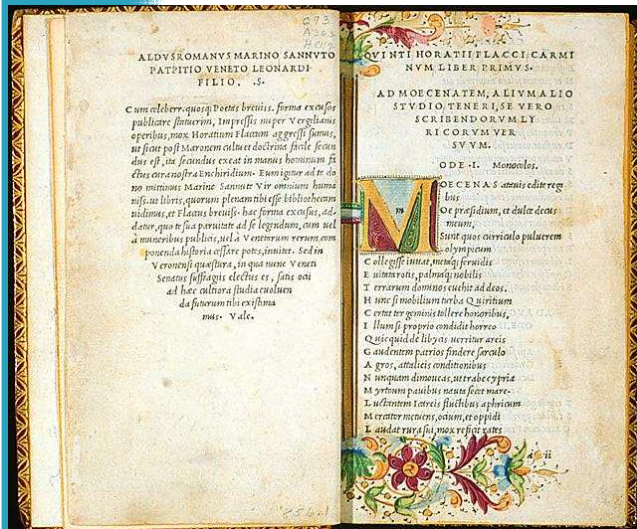 ALDVS ROMANVS MARINO SANNVTO
PATPITIO VENETO LEONARDI
FILIO. .S.
Cum celeberr. quosq; Poetas breuiss. forma excusos
publicare statuerim, Impressis nuper Vergilianis
operibus, mox Horatium Flaccum aggressi sumus,
ut sicut post Maronem cultu et doctrina facile secun
dus est, ita secundus exeat in manus hominum fa
ctus cura nostra Enchiridium. Eum igitur ad te do
no mittimus Marine Sannute Vir omnium huma
niss. ut libris, quorum plenam tibi esse bibliothecam
uidimus, et Flaccus breuiss. hac forma excusus, ad-
datur, quo te sua paruitate ad se legendum, cum uel
a muneribus publicis, uel à Venetarum rerum com
ponenda historia cessare potes, inuitet. Sed in
Veronensi quæstura, in qua nunc Veneti
Senatus suffragiis electus es, satis ocii
ad hæc cultiora studia euoluen
da futurum tibi existima
mus. Vale.
856.1
QVINTI HORATII FLACCI CARMI
NVM LIBER PRIMVS.
AD MOECENATEM, ALIVM ALIO
STVDIO TENERI, SE VERO
SCRIBENDORVM LY
RICORVM VER
SVVM.
ODE .I. Monocolos.
M OECENAS atauis edite regi
bus
O et præsidium, et dulce decus
meum,
Sunt quos curriculo puluerem
olympicum
Collegisse iuuat, metaq; feruidis
Euitata rotis, palmaq; nobilis
Terrarum dominos euehit ad deos.
Hunc si mobilium turba Quiritium
Certat tergeminis tollere honoribus,
Illum si proprio condidit horreo
Quicquid de libycis uerritur areis
Gaudentem patrios findere sarculo
Agros, attalicis conditionibus
Nunquam dimoueas, ut trabe cypria
Myrtoum pauidus nauta secet mare.
Luctantem Icareis fluctibus aphricum
Mercator metuens, ocium, et oppidi
Laudat rura sui, mox reficit rates
a ii